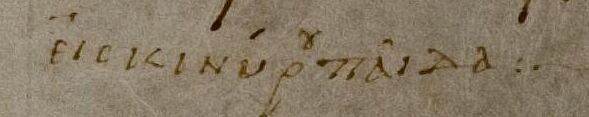 εἰς κινύρου παῖδα :·